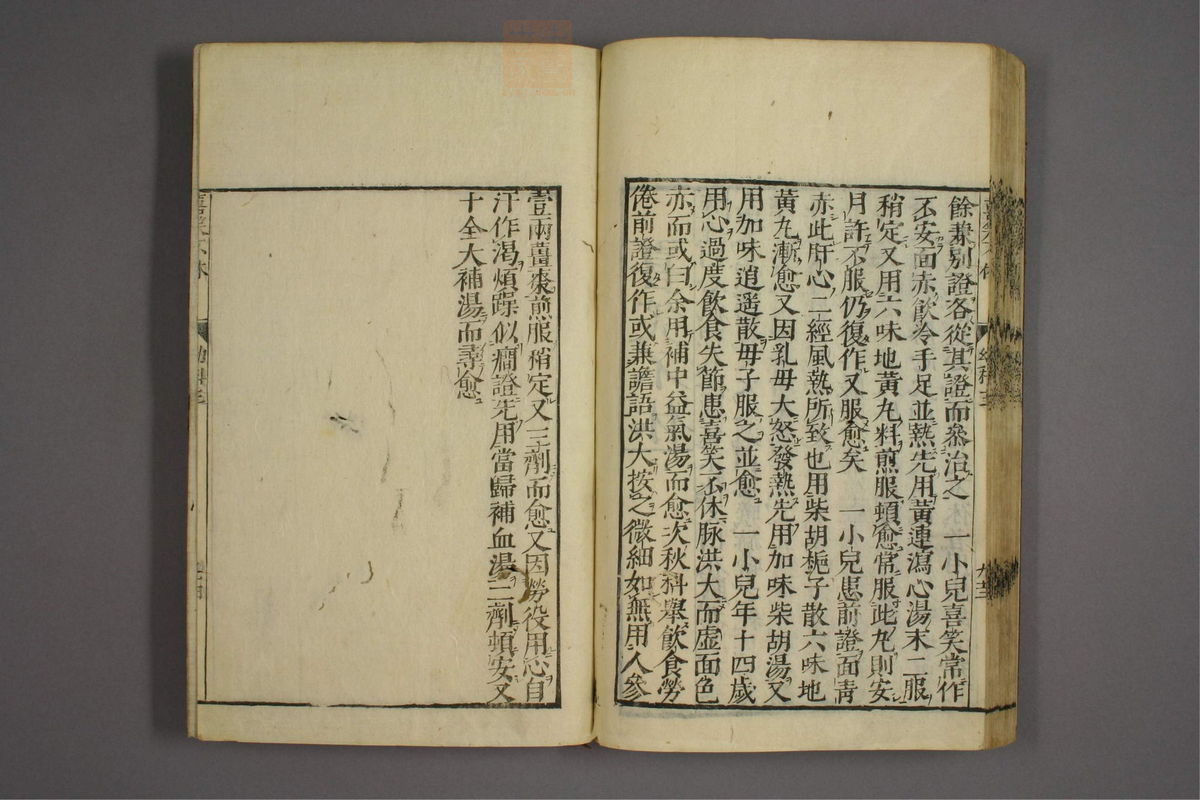 餘兼別證各從其證而參治之　一小兒喜笑常作
不安面赤飲冷手足並熱先用黃連瀉心湯末二服
稍定又用六味地黃丸料煎服頓愈常服此丸則安
月許不服仍復作又服愈矣　一小兒患前證面靑
赤此肝心二經風熱所致也用柴胡梔子散六味地
黃丸漸愈又因乳母大怒發熱先用加味柴胡湯又
用加味逍遥散母子服之並愈　一小兒年十四歲
用心過度飲食失節患喜笑不休脉洪大而虛面色
赤而或白余用補中益氣湯而愈次秋科舉飲食勞
倦前證復作或兼譫語洪大按之微細如無用人參
壹兩薑棗煎服稍定又三劑而愈又因勞役用心自
汗作渴煩躁似癎證先用當歸補血湯二劑頓安又
十全大補湯而尋愈
喜笑不休
幼科三